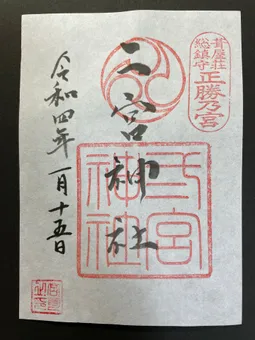 葺屋荘
総鎮守
正勝乃宮
二宮神社
弍宮
神社
令和四年一月十五日